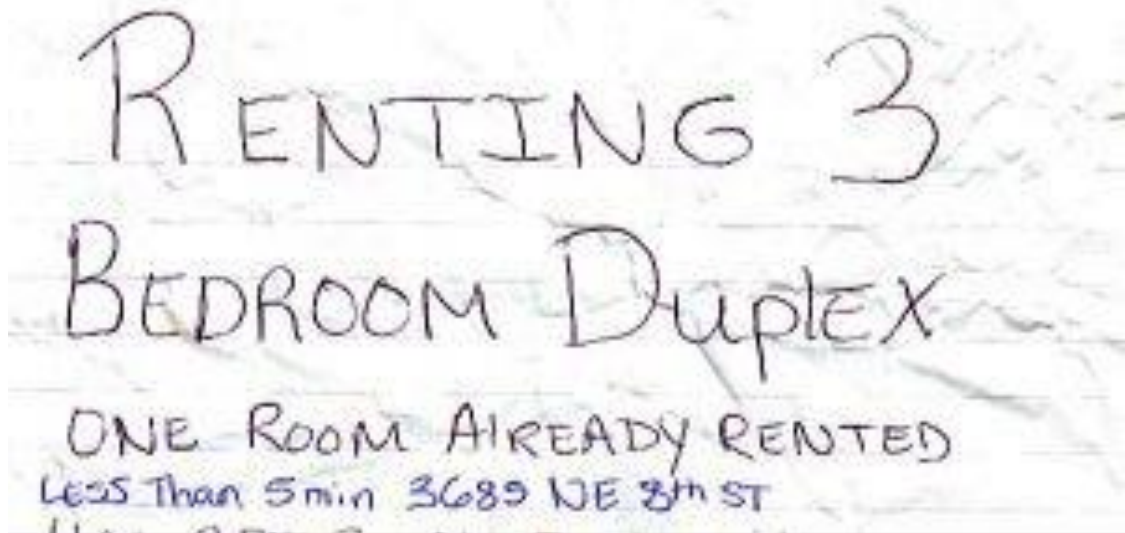 RENTING 3
BEDROOM DuplEX
ONE ROOM AlREADY RENTED
LESS Than 5 min 3689 NE 8th ST